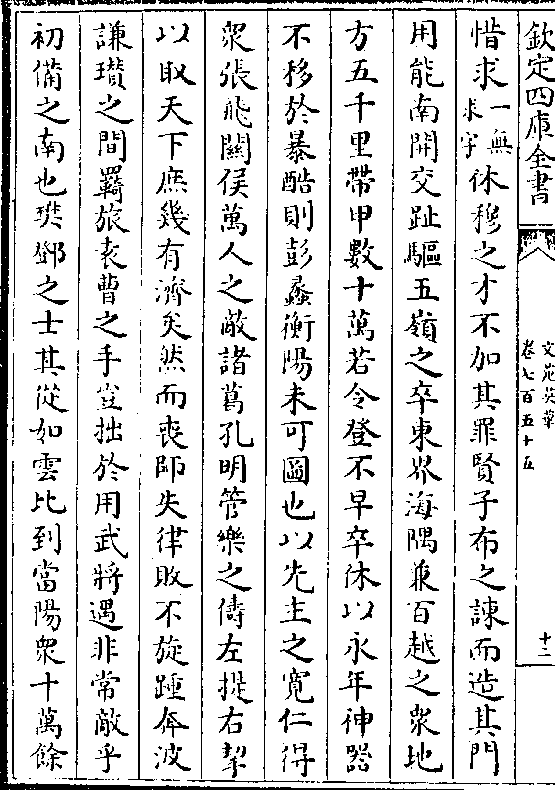 欽定四庫全書
文苑英華
卷七百五十五
十三
惜求一無求字休穆之才不加其罪賢子布之諫而造其門
用能南開交趾驅五嶺之卒東界海隅兼百越之衆地
方五千里帶甲數十萬若令登不早卒休以永年神器
不移於暴酷則彭蠡衡陽未可圖也以先主之寛仁得
衆張飛關侯萬人之敵諸葛孔明管樂之儔左提右挈
以取天下庶幾有濟矣然而喪師失律敗不旋踵奔波
謙瓚之間羇旅袁曹之手豈拙於用武將遇非常敵乎
初備之南也樊鄧之士其從如雲比到當陽衆十萬餘